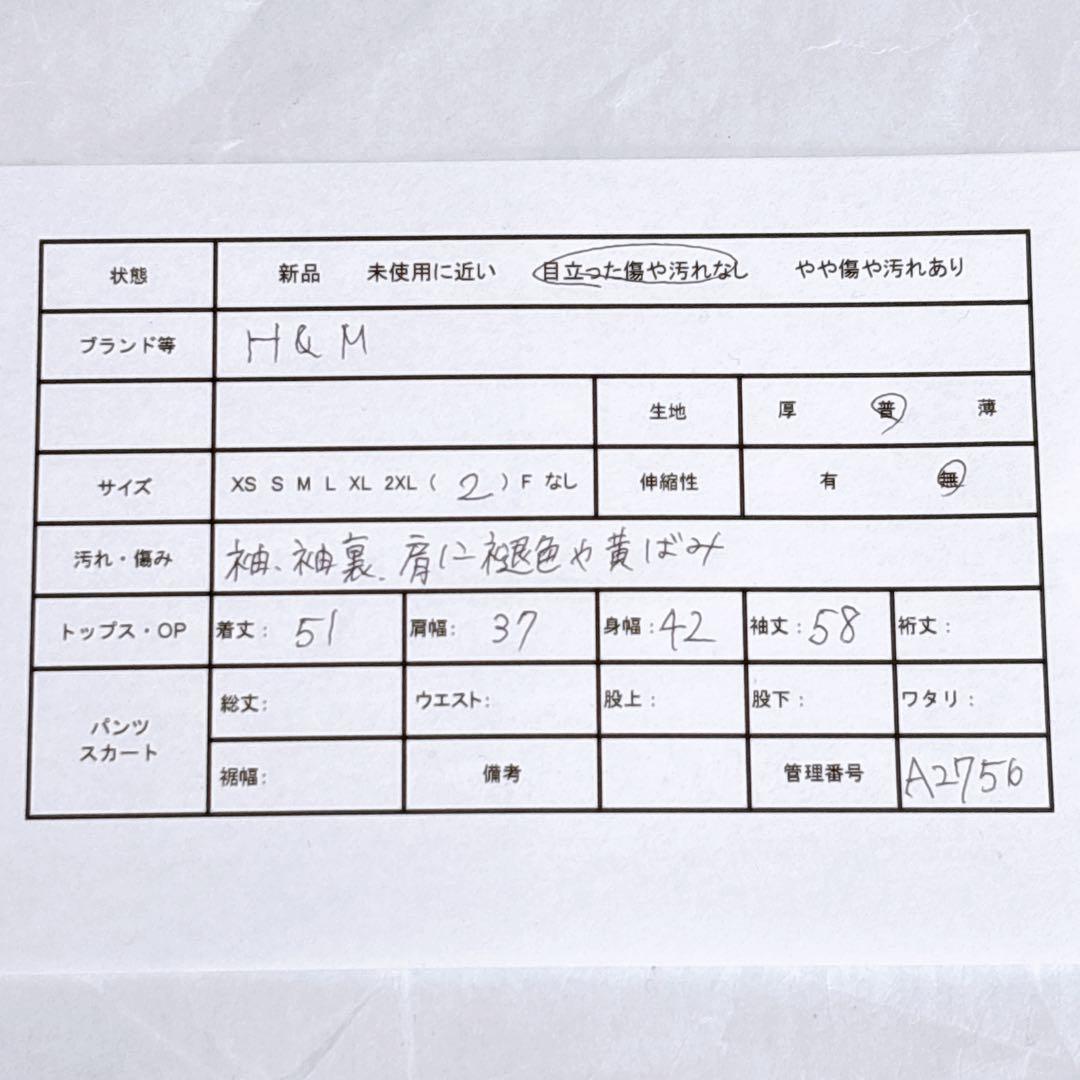 状態 新品 未使用に近い 目立った傷や汚れなし やや傷や汚れあり
ブランド等 H&M
生地 厚 普 薄
サイズ XS S M L XL 2XL ( 2 ) F なし 伸縮性 有 無
汚れ・傷み 袖、袖裏、肩に褪色や黄ばみ
トップス・OP 着丈: 51 肩幅: 37 身幅: 42 袖丈: 58 裄丈:
パンツ スカート
総丈: ウエスト: 股上: 股下: ワタリ:
裾幅: 備考 管理番号 A2756